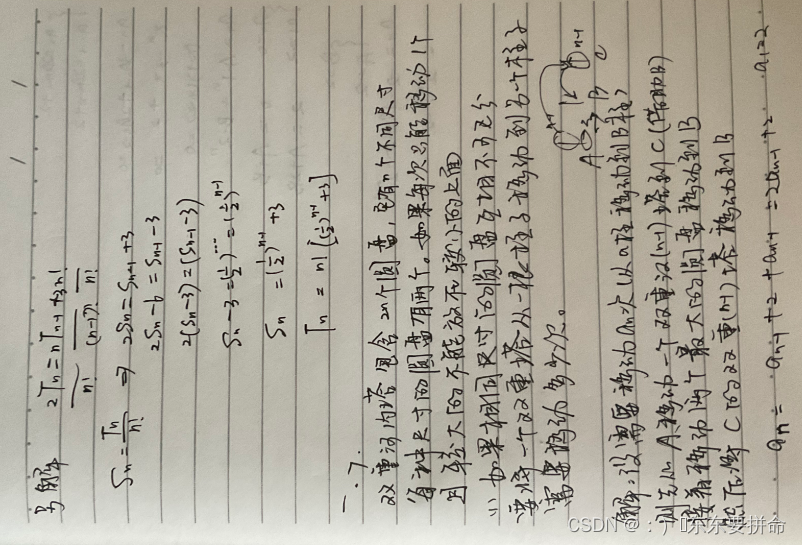 2Tn = nTn-1 + 3n!
n! (n-1)! n!
Sn = Tn/n! ⇒ 2Sn = Sn-1 + 3
2Sn - 6 = Sn-1 - 3
2(Sn - 3) = (Sn-1 - 3)
Sn - 3 = (1/2)^… = (1/2)^n-1
Sn = (1/2)^n-1 + 3
Tn = n! [(1/2)^n-1 + 3]
一.7.
双重汉内塔包含2n个圆盘,它有n个不同尺寸
每种尺寸的圆盘有两个。如果每次只能移动1个
且较大的不能放在较小的上面
(1) 如果相同尺寸的圆盘互相不可区分
要将一个双重塔从一根柱子移动到另一个柱子
需要移动多少次。
n-1 n-1
A 2 B C
解:设需要移动an次从A柱移动到B柱
则先从A移动一个双重汉(n-1)塔到C(借助B)
接着移动两个最大的圆盘移动到B
然后将C的双重(n-1)塔移动到B
an = an-1 + 2 + an-1 = 2an-1 + 2 a1=2
CSDN @:)东东要拼命